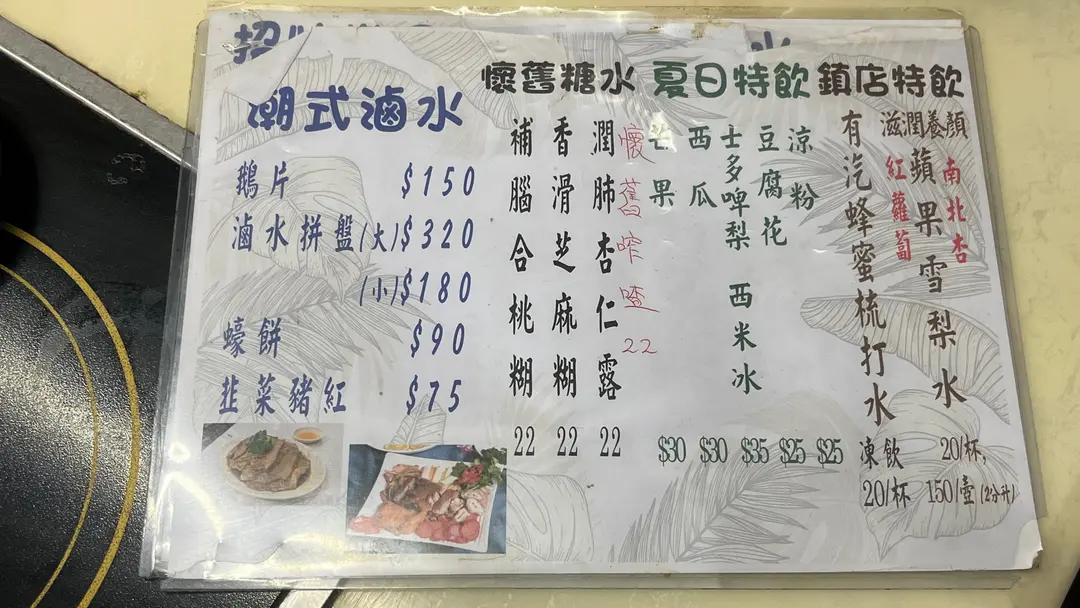 招
潮式滷水
鵝片 $150
滷水拼盤(大)$320
(小)$180
蠔餅 $90
韭菜豬紅 $75
懷舊糖水
補腦合桃糊 22
香滑芝麻糊 22
潤肺杏仁露 22
懷舊喳喳 22
夏日特飲
芒果 $30
西瓜 $30
士多啤梨 $35
豆腐花 $25
涼粉 $25
西米冰
鎮店特飲
有汽蜂蜜梳打水
凍飲
20/杯
滋潤養顏
紅蘿蔔
蘋果雪梨水
南北杏
20/杯,
150/壺(2公升)